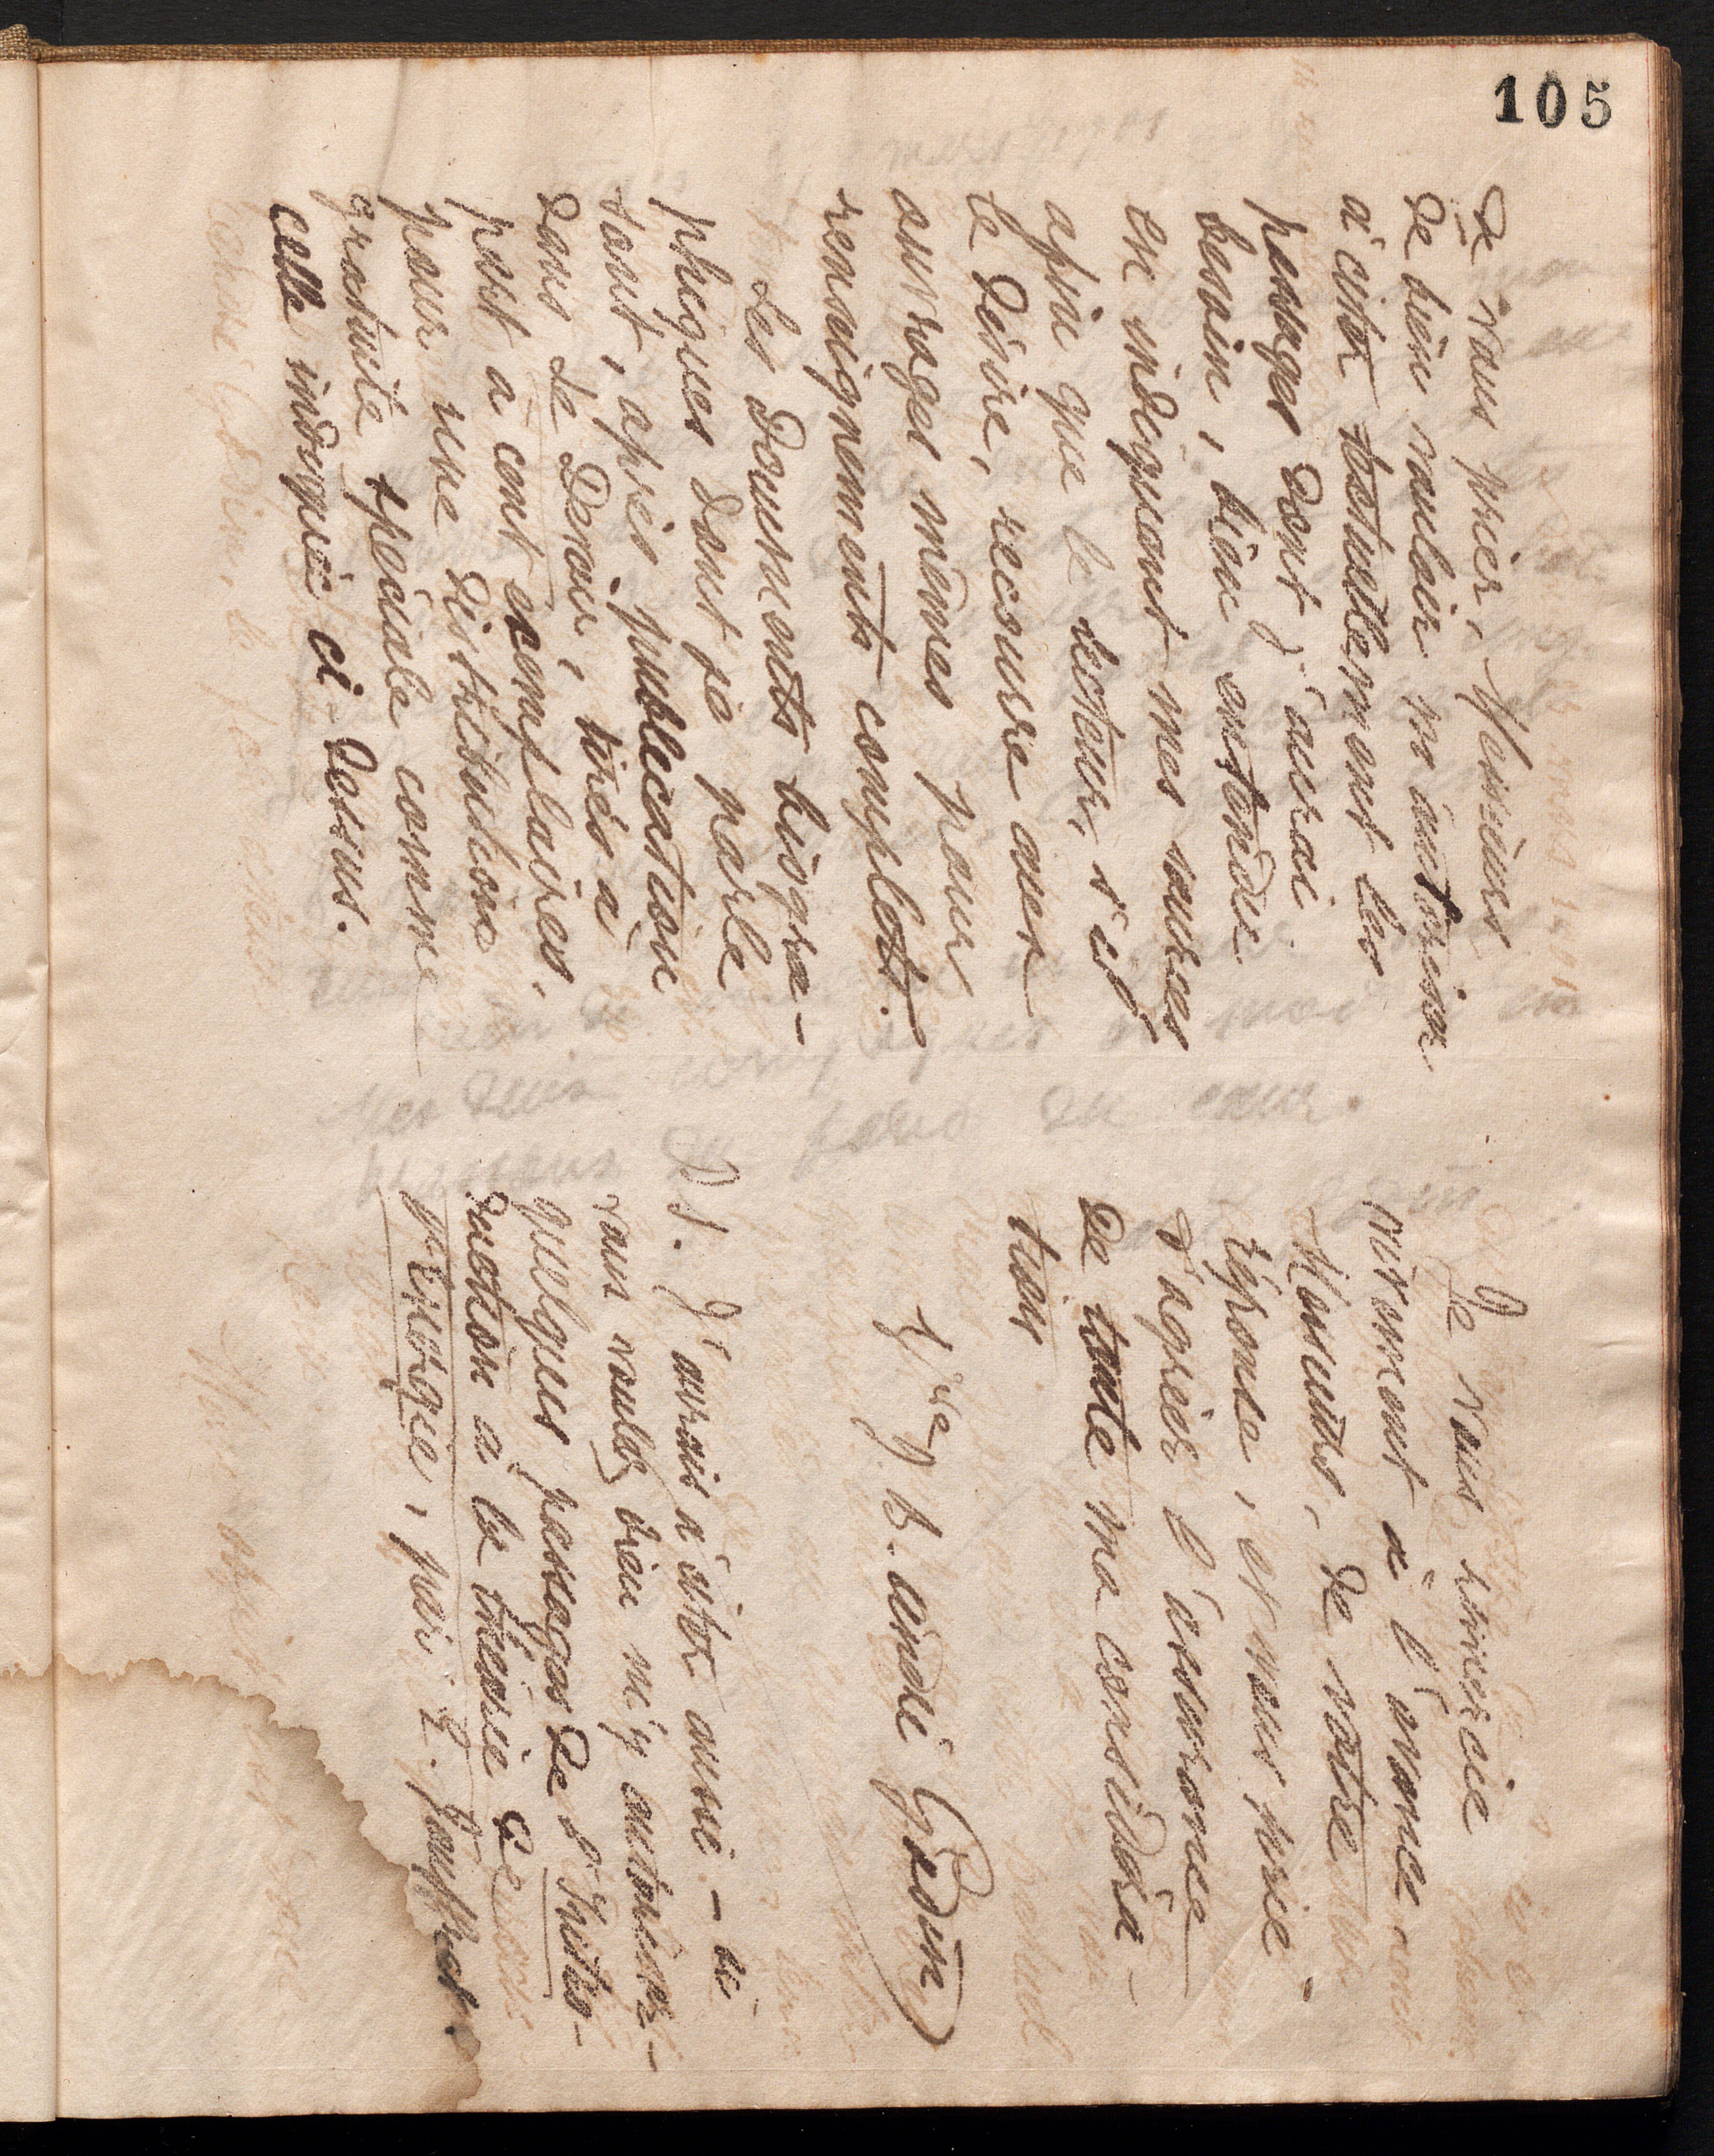 105
de vous prier, Messieurs
de bien vouloir m'autoriser
à citer textuellement les
passages dont j'aurai
besoin, bien entendu
en indiquant mes sources
afin que le lecteur, s'il
le désire, recoure aux
ouvrages mêmes pour
renseignements complets.
Les documents biogra-
phiques dont je parle
sont, après publication
dans le Devoir, tirés à
part à cent exemplaires,
pour une distribution
gratuite spéciale comme
celle indiquée ci-dessus.
Je vous remercie
vivement à l'avance
Messieurs, de votre
réponse, et vous prie
d'agréer l'assurance
de toute ma considéra-
tion
Vve J. B. André Godin
P. S. J'aurais à citer aussi - si
vous voulez bien m'y autoriser -
quelques passages de l'Intro-
duction à la théorie de
, par E. Pouffret.